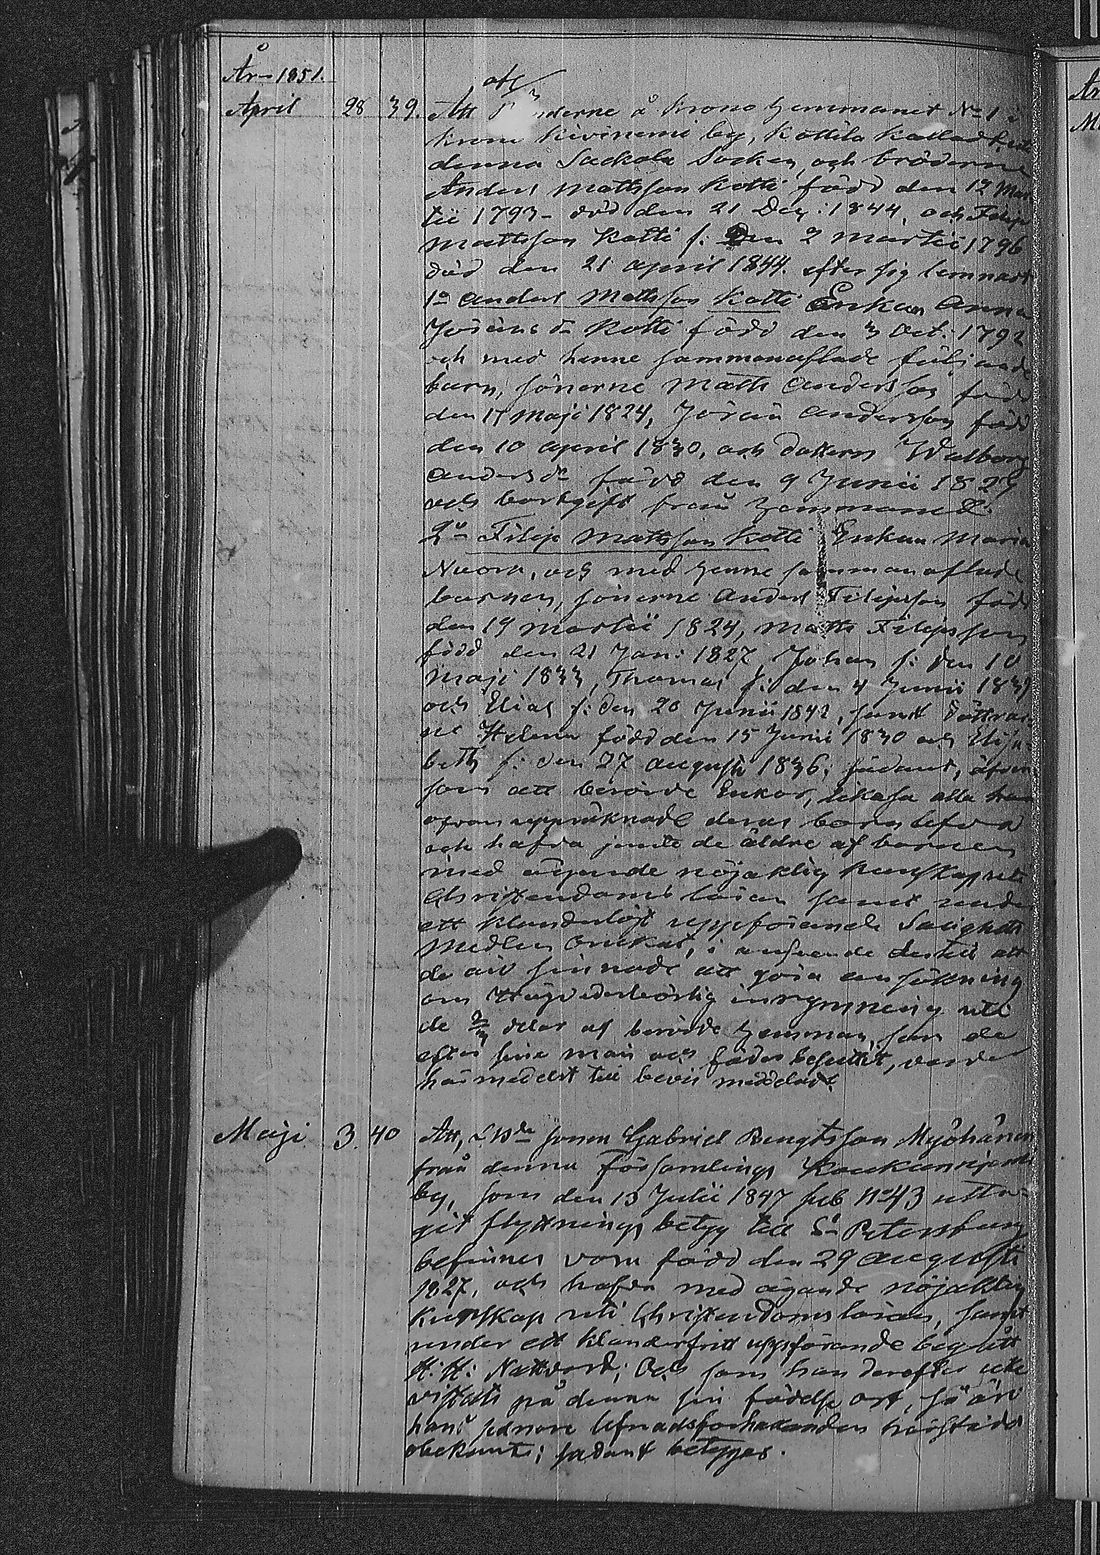 År 1851.
April 28 39. Att å Krono Hemmanet No 1 i
Krono Kivinemi by, Kottila kallad
denna Sackola Socken, och bröderne
Anders Mattsson Kotti född den 12 Mar-
tii 1793 död den 21 Dec: 1844, och Filip
Mattsson Kotti f. den 2 Martii 1796
död den 21 April 1844. efter sig lemnat
1o Anders Mattsson Kotti Enkan Anna
Jöransdr Kotti född den 3 Oct: 1792
och med henne sammanaflade följande
barn, sönerne Matts Andersson född
den 17 Maji 1824, Jöran Andersson född
den 10 April 1830, och dottern Walborg
Andersdr född den 9 Junii 1825
och bortgift från Hemmanet
2o Filip Mattsson Kotti Enkan Maria
och med henne sammanaflade
barnen, sönerne Anders Filipsson född
den 19 Martii 1824, Matts Filipsson
född den 21 Jan: 1827, Johan f: den 10
Maji 1833, Thomas f: den 4 Junii 1839
och Elias f: den 20 Junii 1842, samt döttrar-
ne Helena född den 15 Junii 1830 och Elisa-
beth f: den 27 Augusti 1836; sådant, äfven
som att berörde Enkor, likasa alla här
ofvan uppräknade deras barn lefva
och hafva jemte de äldre af barnen
med ägande nöjaktig kunskap uti
Christendoms läran samt under
ett klanderlöst uppförande Salighets
Medlen brukat, i anseende dertill att
de äro sinnade att göra ansökning
om vederbörlig inrymning uti
de 2/3 delar af berörde Hemman, som de
efter sine män och fäder besuttit, varder
härmedelst till bevis meddelat.
Maji 3. 40 Att, Gabriel Bengtsson Myöhänen
från denna Församlings
by, som den 13 Julii 1847 sub No 43 utta-
git flyttnings betyg till St Petersburg
befinnes vara född den 29 Augusti
1827, och hafva med ägande nöjaktig
kunskap uti Christendoms läran, samt
under ett klanderfritt uppförande begått
H: H: Nattvard; Och som han derefter icke
vistats på denna sin födelse ort, så äro
hans sednare lefnadsförhållanden härstädes
obekante; sådant betygas.